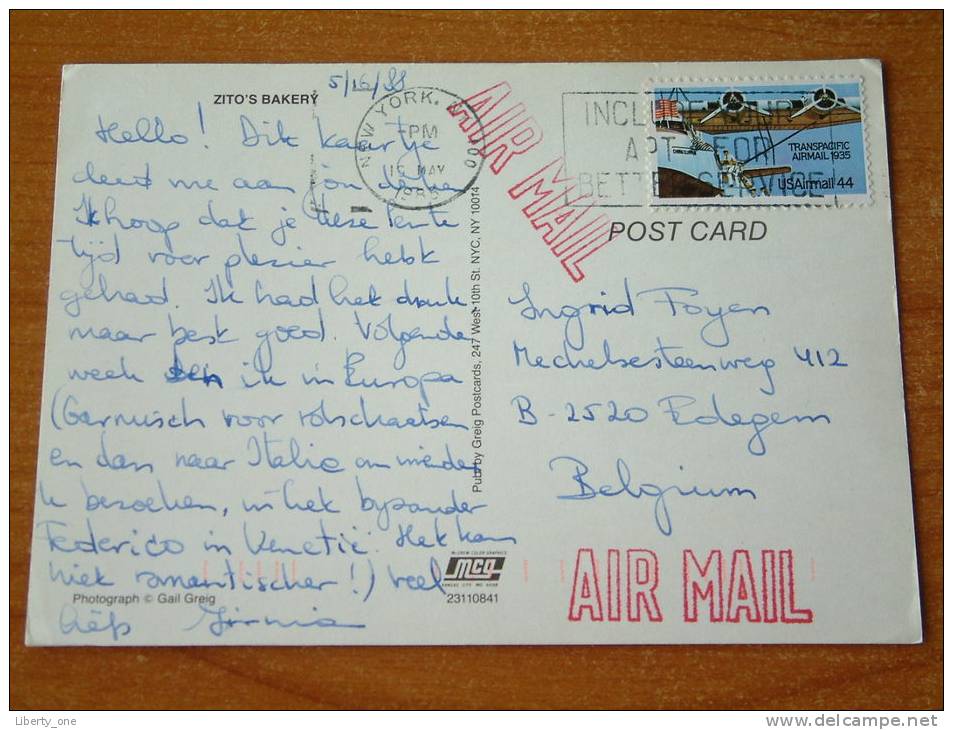 ZITO'S BAKERY
5/16/88
Hello! Dit kaartje
deed me aan jou
Ik hoop dat je deze lente
tijd voor plezier hebt
gehad. Ik had het druk,
maar best goed. Volgende
week ben ik in Europa
(Garmisch voor rolschaatsen
en dan naar Italië om vrienden
te bezoeken, in het byzonder
Federico in Venetië. Het kan
niet romantischer!) Veel
liefs
Photograph © Gail Greig
NEW YORK, NY 100
PM
MAY
1988
AIR MAIL
Pub. by Greig Postcards, 247 West 10th St. NYC, NY 10014
mcg
KANSAS CITY, MO
23110841
INCLUDE YOUR
APT FOR
BETTER SERVICE
TRANSPACIFIC
AIRMAIL 1935
USAirmail 44
POST CARD
Ingrid Foyen
Mechelsesteenweg 412
B-2520 Edegem
Belgium
AIR MAIL
Liberty_one
www.delcampe.net